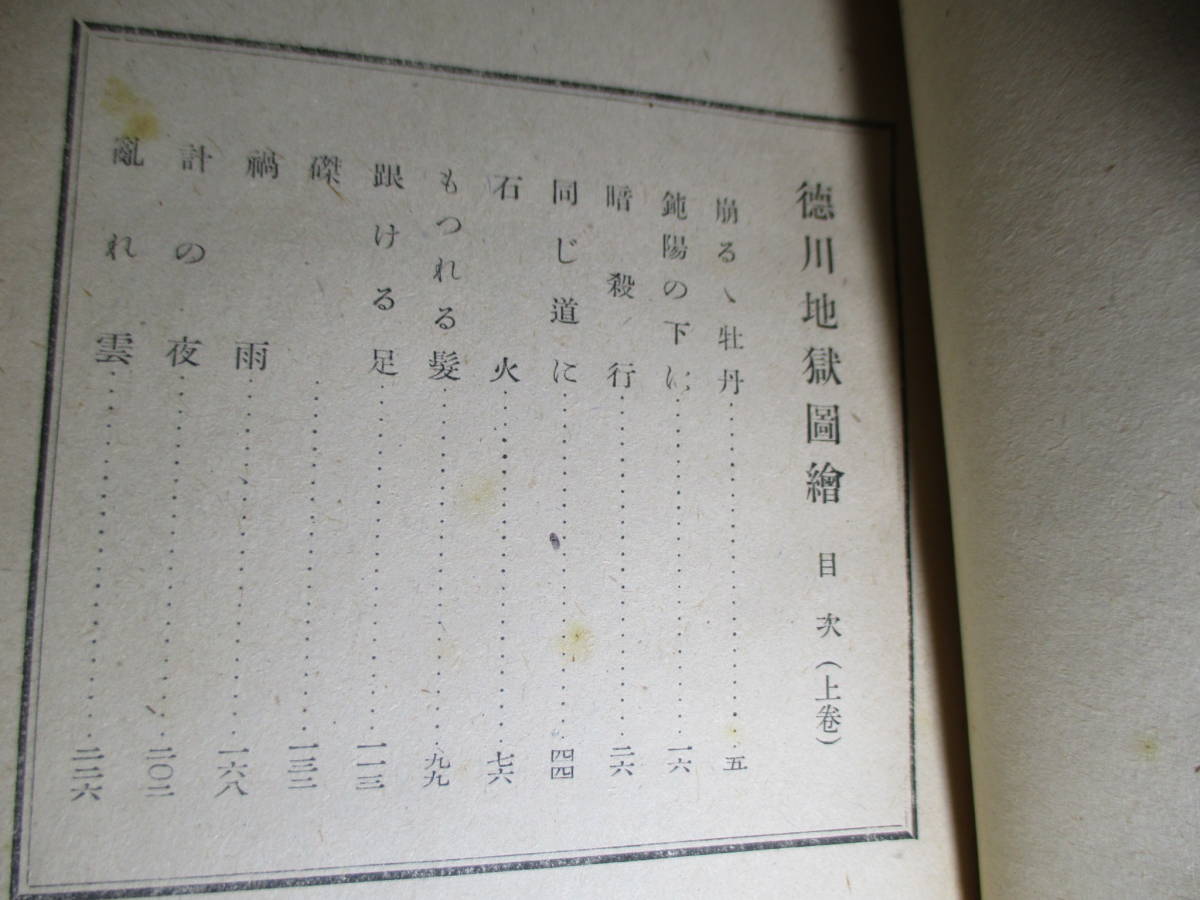 德川地獄圖繪 目次(上卷)
崩るゝ牡丹……五
鈍陽の下に……一六
暗殺行……二六
同じ道に……四四
石火……七六
もつれる髮……九九
跟ける足……一一三
磔……一三三
禍雨……一六八
計の夜……二〇二
亂れ雲……二二六